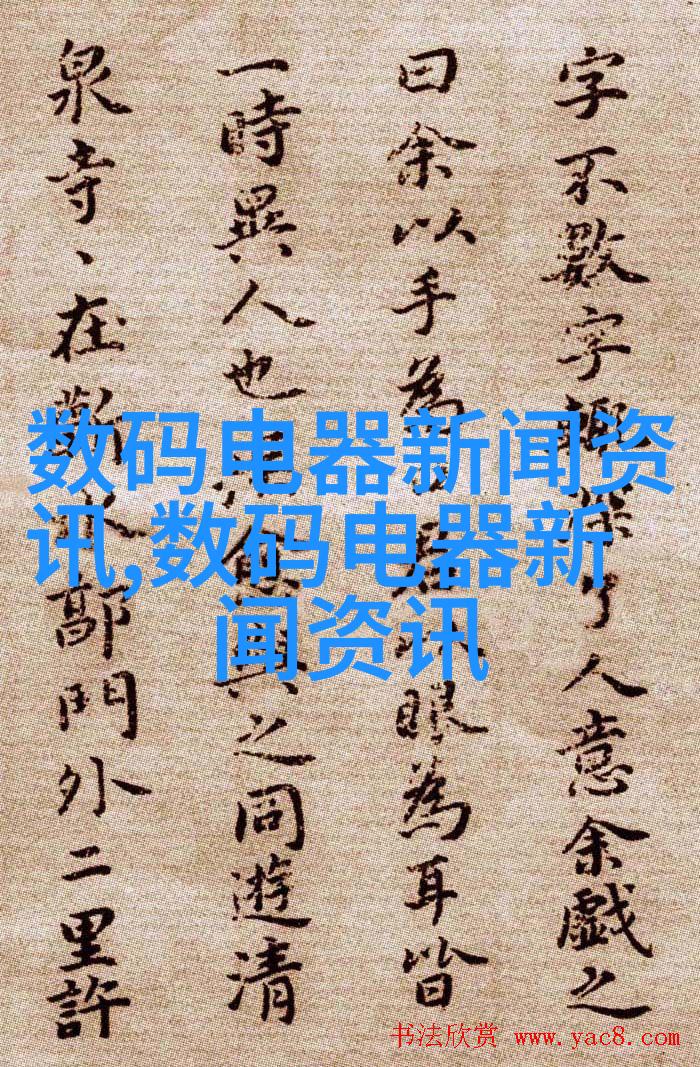 字不數字輒深了人意余戲之
曰余以手為眼為耳皆
一時異人也與之同遊清
泉寺、在蘄水郭門外二里許
数码电器新闻资
讯,数码电器新
闻资讯
书法欣赏 www.yac8.com